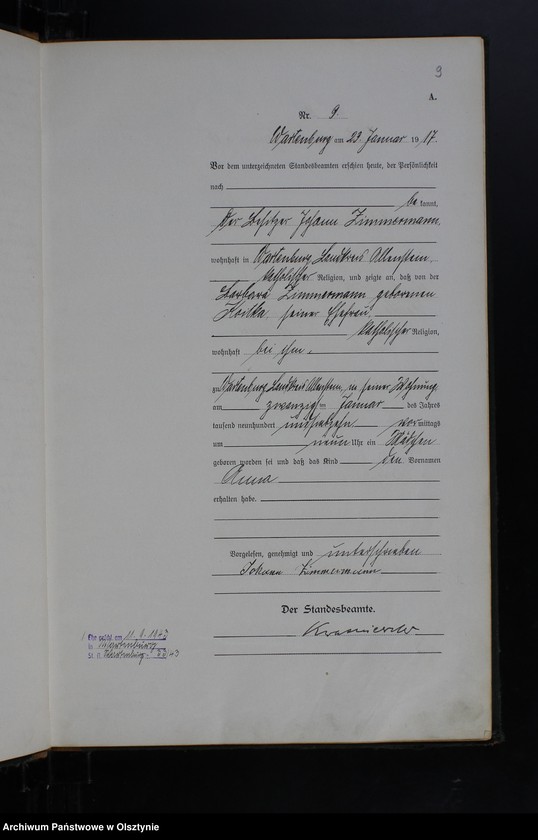 9
A.
Nr. 9.
Wartenburg am 22. Januar 1917.
Vor dem unterzeichneten Standesbeamten erschien heute, der Persönlichkeit
nach
be kannt,
der Besitzer Johann Zimmermann
wohnhaft in Wartenburg Landkreis Allenstein,
katholischer Religion, und zeigte an, daß von der
Barbara Zimmermann geborenen
seiner Ehefrau,
katholischer Religion,
wohnhaft bei ihm,
zu Wartenburg Landkreis Allenstein, in seiner Wohnung
am zwanzigsten Januar des Jahres
tausend neunhundert undsiebzehn vor mittags
um neun Uhr ein Mädchen
geboren worden sei und daß das Kind den Vornamen
Anna
erhalten habe.
Vorgelesen, genehmigt und unterschrieben
Johann Zimmermann
Der Standesbeamte.
Ehe geschl. am
in Wartenburg
St. A. Wartenburg
Archiwum Państwowe w Olsztynie